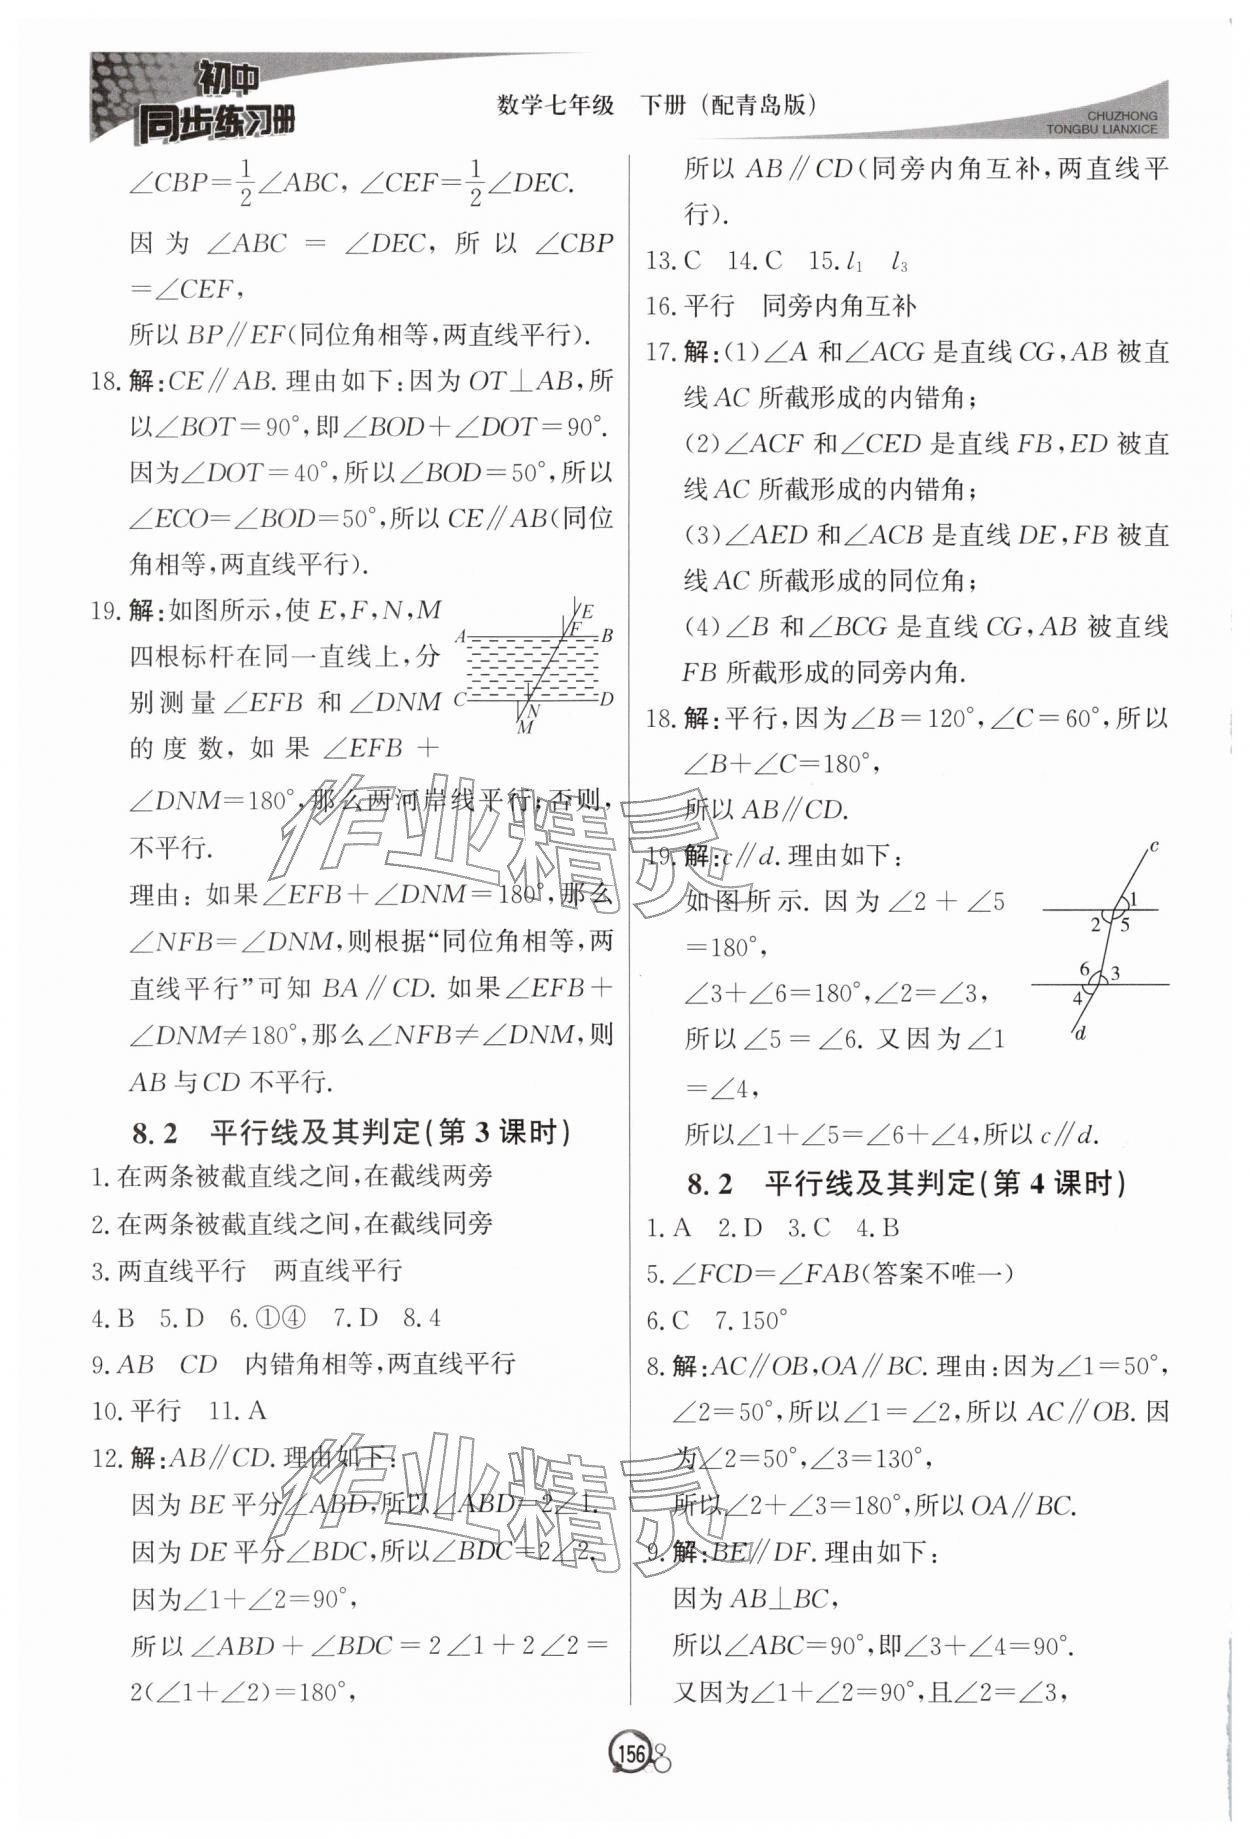 初中
同步练习册
数学七年级 下册（配青岛版）
CHUZHONG
TONGBU LIANXICE
∠CBP=1/2∠ABC，∠CEF=1/2∠DEC.
因为 ∠ABC = ∠DEC，所以 ∠CBP
=∠CEF，
所以 BP∥EF(同位角相等，两直线平行).
18. 解：CE∥AB. 理由如下：因为 OT⊥AB，所
以∠BOT=90°，即∠BOD+∠DOT=90°.
因为∠DOT=40°，所以∠BOD=50°，所以
∠ECO=∠BOD=50°，所以 CE∥AB(同位
角相等，两直线平行).
19. 解：如图所示，使 E，F，N，M
四根标杆在同一直线上，分
别测量 ∠EFB 和 ∠DNM
的度数，如果 ∠EFB +
∠DNM=180°，那么两河岸线平行；否则，
不平行.
理由：如果∠EFB+∠DNM=180°，那么
∠NFB=∠DNM，则根据“同位角相等，两
直线平行”可知 BA∥CD. 如果∠EFB+
∠DNM≠180°，那么∠NFB≠∠DNM，则
AB 与 CD 不平行.
A B C D E F N M
8.2 平行线及其判定(第 3 课时)
1. 在两条被截直线之间，在截线两旁
2. 在两条被截直线之间，在截线同旁
3. 两直线平行 两直线平行
4. B 5. D 6. ①④ 7. D 8. 4
9. AB CD 内错角相等，两直线平行
10. 平行 11. A
12. 解：AB∥CD. 理由如下：
因为 BE 平分∠ABD，所以∠ABD=2∠1.
因为 DE 平分∠BDC，所以∠BDC=2∠2.
因为∠1+∠2=90°，
所以∠ABD+∠BDC=2∠1+2∠2=
2(∠1+∠2)=180°，
所以 AB∥CD(同旁内角互补，两直线平
行).
13. C 14. C 15. l₁ l₃
16. 平行 同旁内角互补
17. 解：(1)∠A 和∠ACG 是直线 CG，AB 被直
线 AC 所截形成的内错角；
(2)∠ACF 和∠CED 是直线 FB，ED 被直
线 AC 所截形成的内错角；
(3)∠AED 和∠ACB 是直线 DE，FB 被直
线 AC 所截形成的同位角；
(4)∠B 和∠BCG 是直线 CG，AB 被直线
FB 所截形成的同旁内角.
18. 解：平行，因为∠B=120°，∠C=60°，所以
∠B+∠C=180°，
所以 AB∥CD.
19. 解：c∥d. 理由如下：
如图所示. 因为∠2+∠5
=180°，
∠3+∠6=180°，∠2=∠3，
所以∠5=∠6. 又因为∠1
=∠4，
所以∠1+∠5=∠6+∠4，所以 c∥d.
c 1 2 5 6 3 4 d
8.2 平行线及其判定(第 4 课时)
1. A 2. D 3. C 4. B
5. ∠FCD=∠FAB(答案不唯一)
6. C 7. 150°
8. 解：AC∥OB，OA∥BC. 理由：因为∠1=50°，
∠2=50°，所以∠1=∠2，所以 AC∥OB. 因
为∠2=50°，∠3=130°，
所以∠2+∠3=180°，所以 OA∥BC.
9. 解：BE∥DF. 理由如下：
因为 AB⊥BC，
所以∠ABC=90°，即∠3+∠4=90°.
又因为∠1+∠2=90°，且∠2=∠3，
作业精灵
作业精灵
156